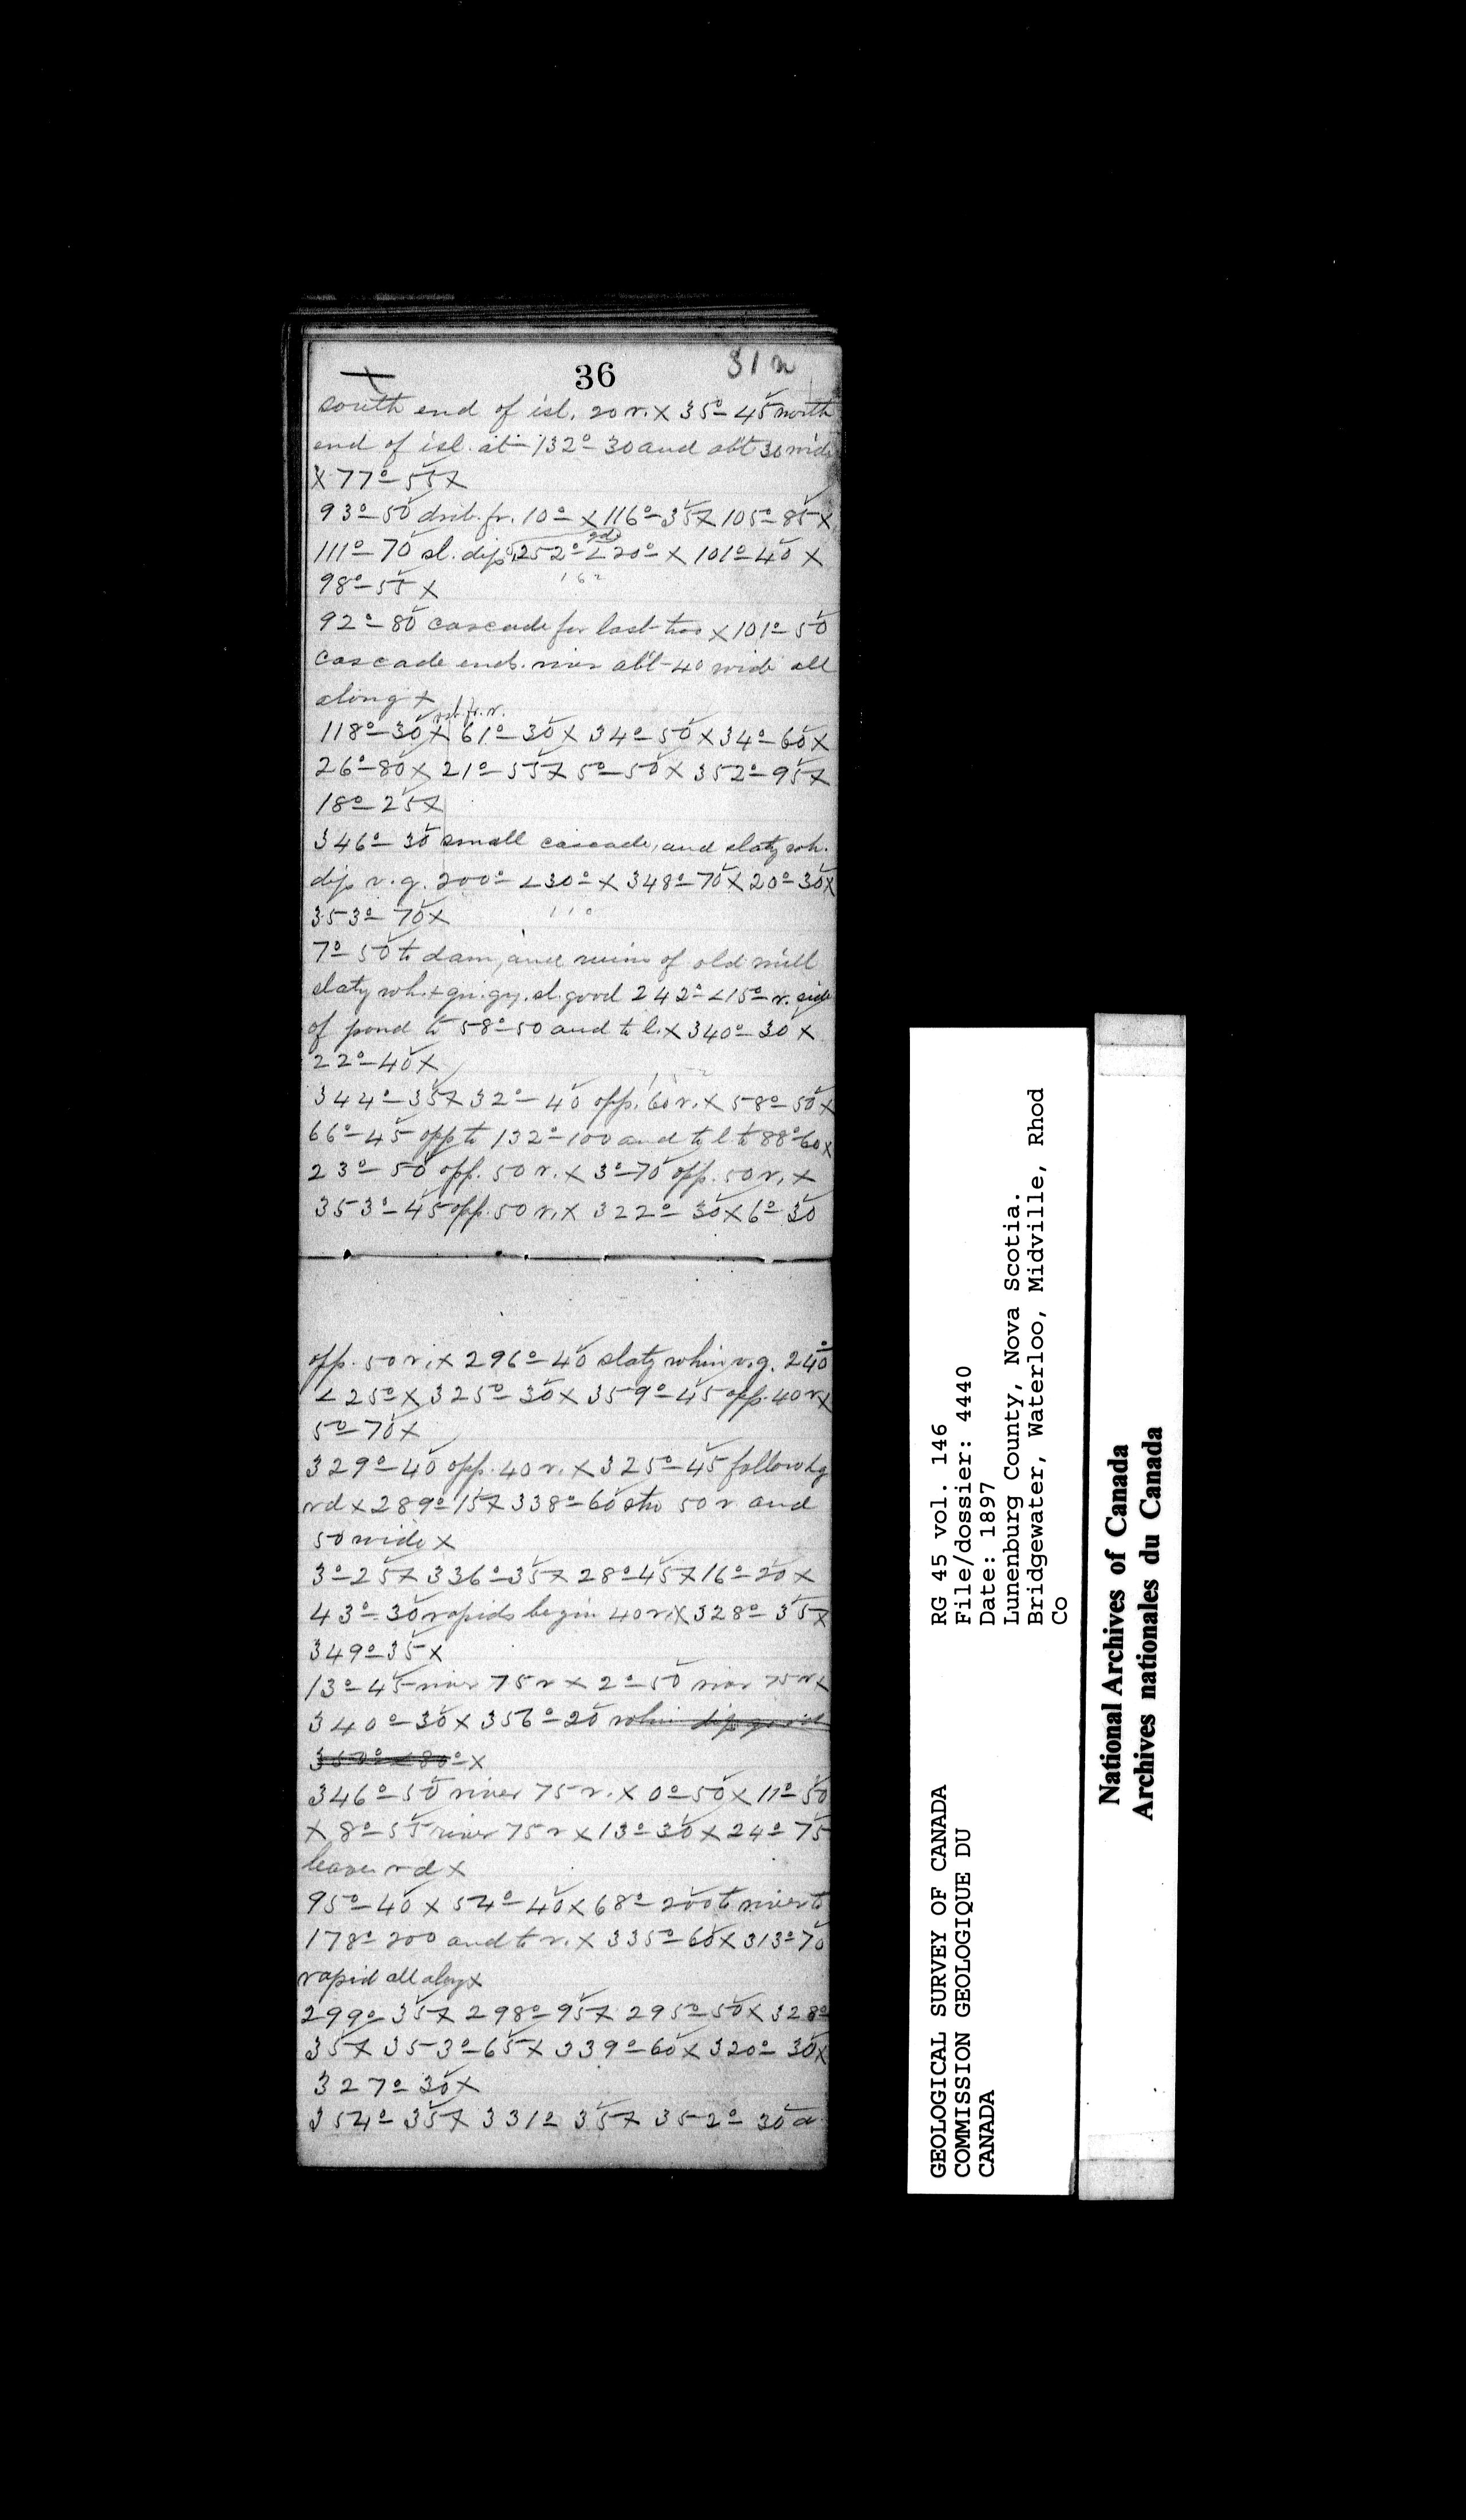 36
31 n
south end of isl. 20 r. X 35° - 45 north
end of isl. at 132° - 30 and abt 30 wide
X 77° - 55 X
93° - 50 drib. fr. 10° - X 116° - 35 X 105° - 85 X
gd
111° - 70 sl. dip 252° < 20° X 101° - 40 X
162
98° - 55 X
92° - 80 cascade for last two X 101° - 50
cascade ends. river abt 40 wide all
along X
118° - 30 X 61° - 30 X 34° - 50 X 34° - 60 X
26° - 80 X 21° - 55 X 5° - 50 X 352° - 95 X
18° - 25 X
346° - 30 small cascade, and slaty wh.
dip v.g. 200° < 30° X 348° - 70 X 20° - 30 X
110
353° - 70 X
7° - 50 to dam, and ruins of old mill
slaty wh. + gn. gy. sl. good 242° < 15° - r. side
of pond to 58° - 50 and to l. X 340° - 30 X
22° - 40 X
152
344° - 35 X 32° - 40 opp. 60 r. X 58° - 50 X
66° - 45 opp to 132° - 100 and to l. to 88° - 60 X
23° - 50 opp. 50 r. X 3° - 70 opp. 50 r. X
353° - 45 opp. 50 r. X 322° - 30 X 6° - 30
opp. 50 r. X 296° - 40 slaty whin v.g. 240°
< 25° X 325° - 30 X 359° - 45 opp. 40 r X
5° - 70 X
329° - 40 opp. 40 r. X 325° - 45 follow lg
rd X 289° - 15 X 338° - 60 stw 50 r and
50 wide X
3° - 25 X 336° - 35 X 28° - 45 X 16° - 20 X
43° - 30 rapids begin 40 r. X 328° - 35 X
349° - 35 X
13° - 45 river 75 r X 2° - 50 river 75 r X
340° - 30 X 356° - 20 whin dip good
350° < 80° - X
346° - 50 river 75 r. X 0° - 50 X 11° - 50
X 8° - 55 river 75 r X 13° - 30 X 24° - 75
leave rd X
95° - 40 X 54° - 40 X 68° - 200 to river to
178° - 200 and to r. X 335° - 60 X 313° - 70
rapid all along X
299° - 35 X 298° - 95 X 295° - 50 X 328°
35 X 353° - 65 X 339° - 60 X 320° - 30 X
327° - 30 X
354° - 35 X 331° - 35 X 352° - 30 a
GEOLOGICAL SURVEY OF CANADA
COMMISSION GEOLOGIQUE DU
CANADA
RG 45 vol. 146
File/dossier: 4440
Date: 1897
Lunenburg County, Nova Scotia.
Bridgewater, Waterloo, Midville, Rhod
Co
National Archives of Canada
Archives nationales du Canada